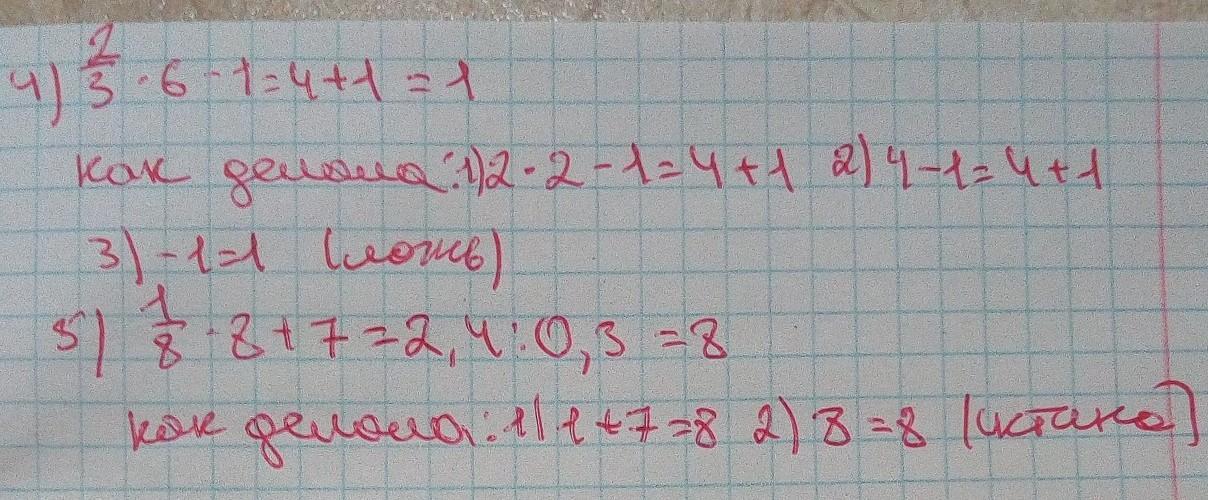 4) 2/3 · 6 - 1 = 4 + 1 = 1
как делала: 1) 2 · 2 - 1 = 4 + 1 2) 4 - 1 = 4 + 1
3) - 1 = 1 (ложь)
5) 1/8 · 8 + 7 = 2,4 : 0,3 = 8
как делала: 1) 1 + 7 = 8 2) 8 = 8 (истина)